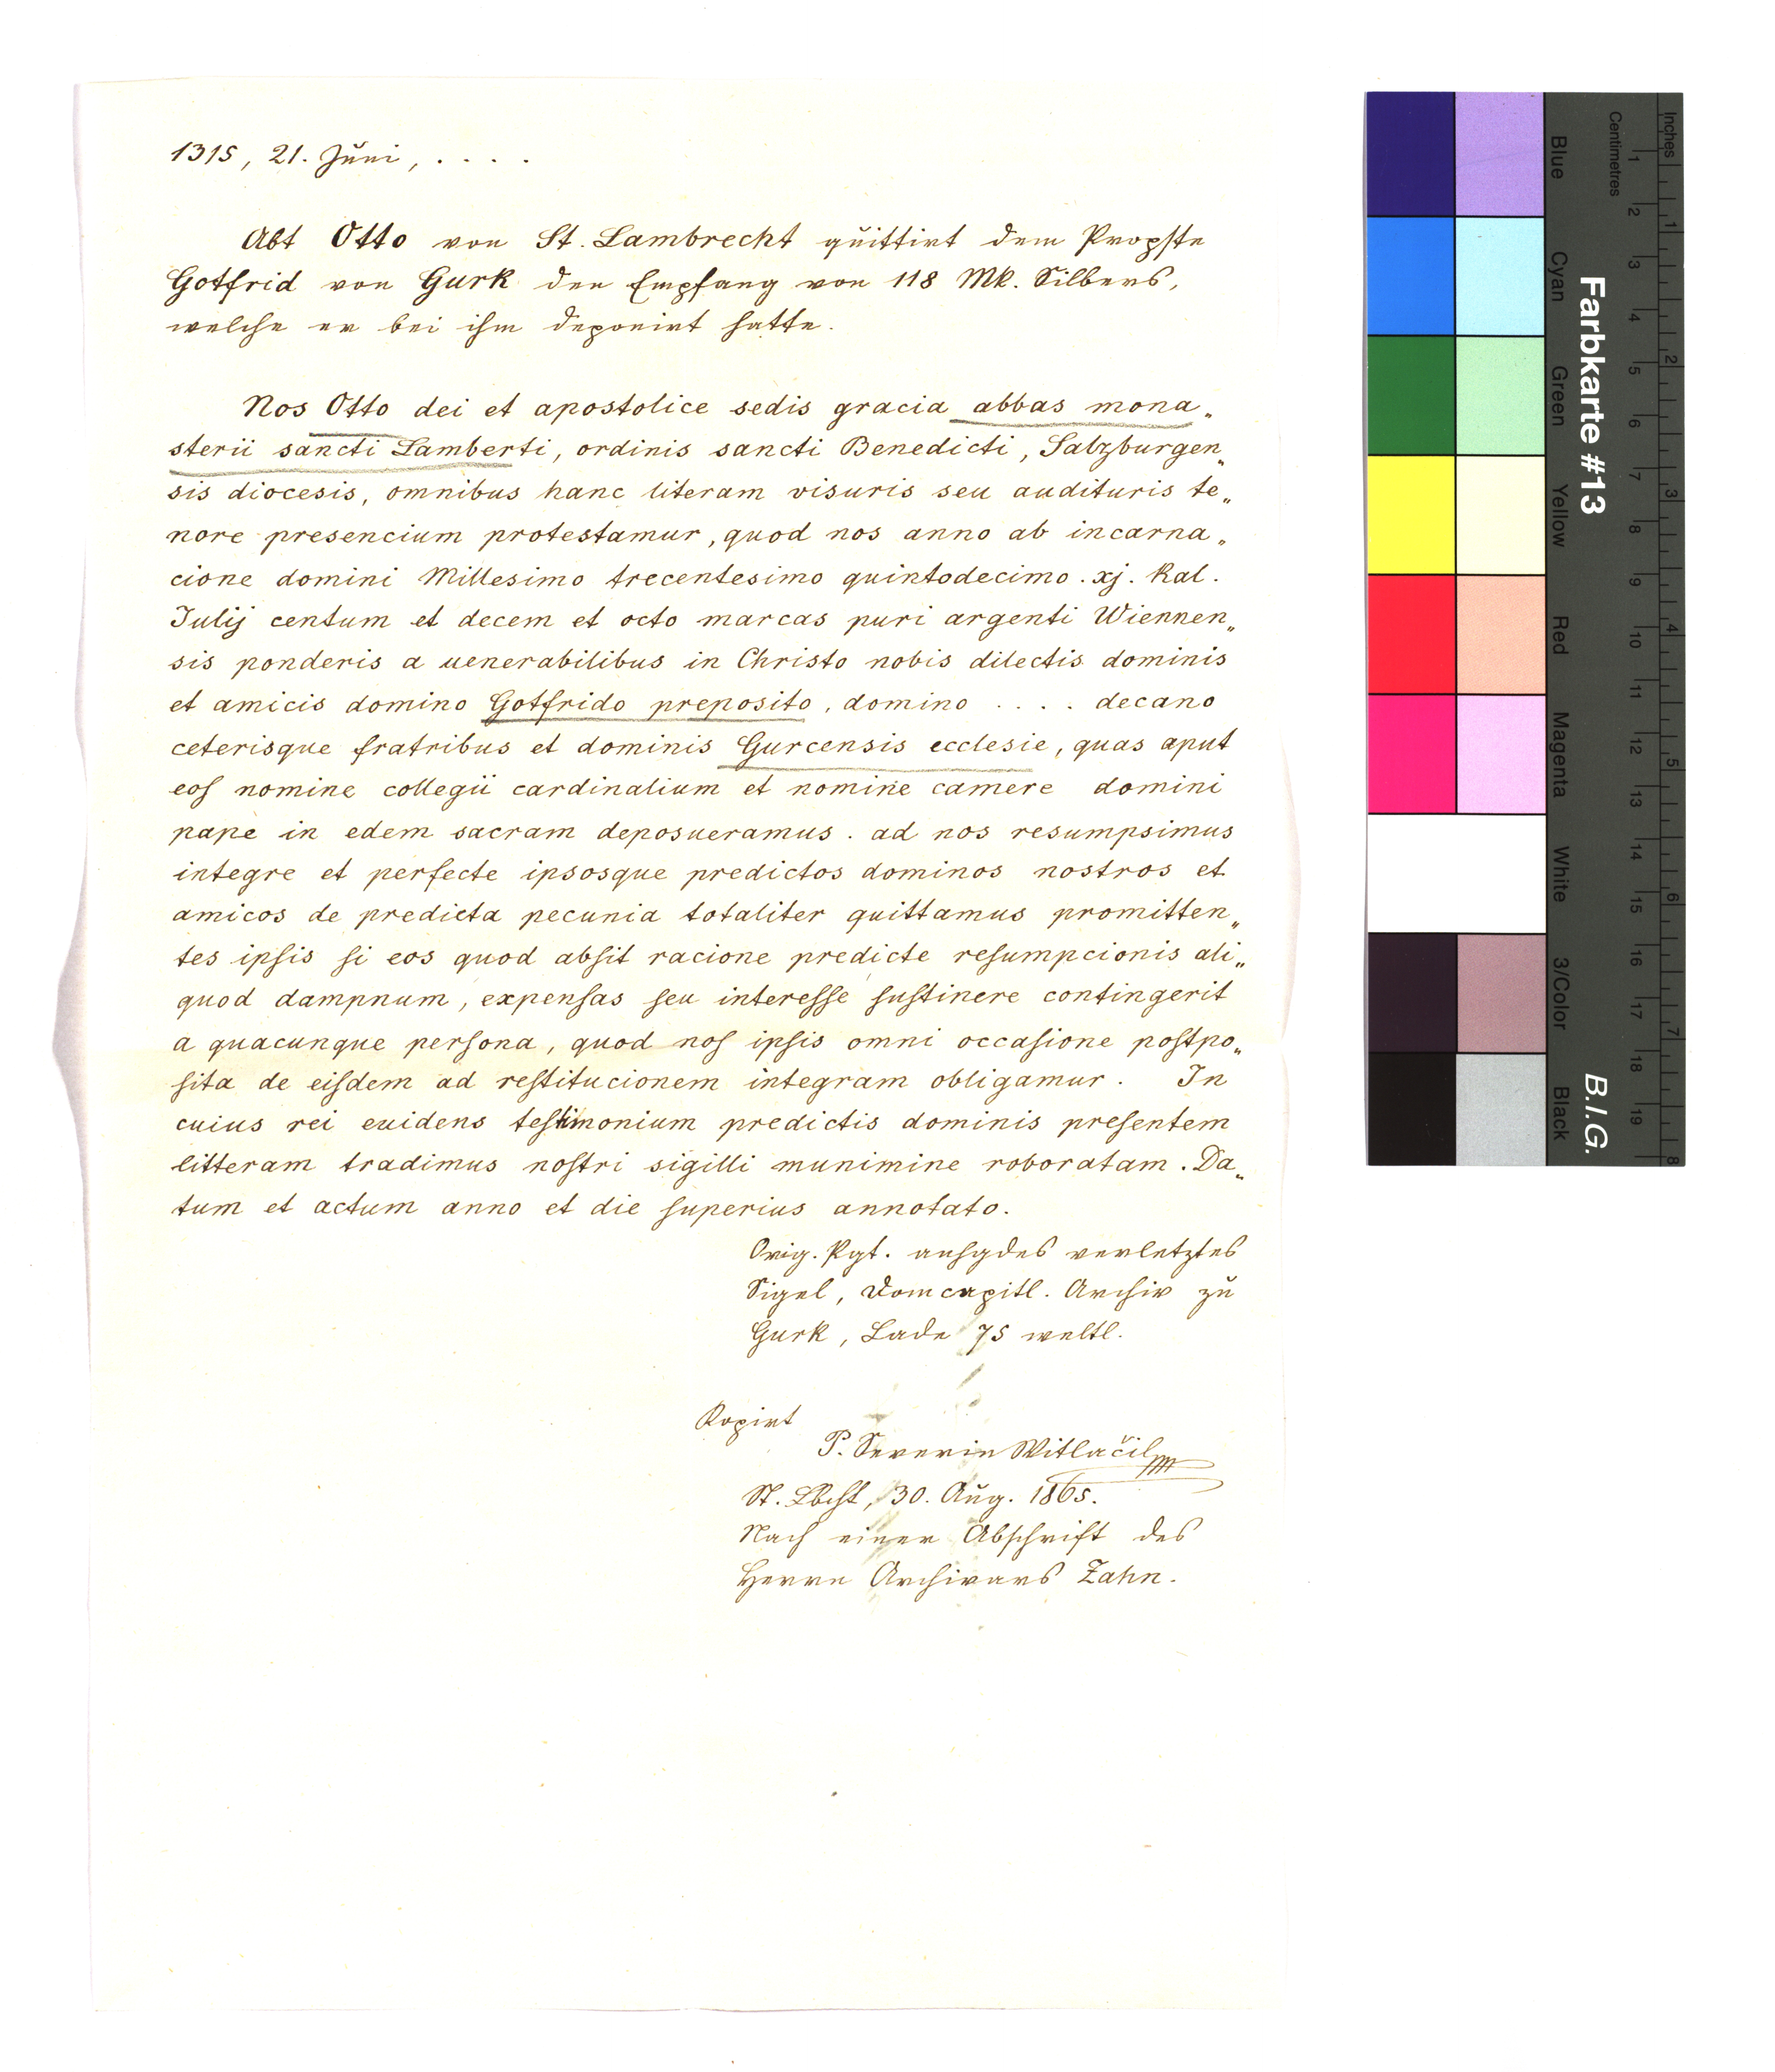 1315, 21. Juni, . . . .
Abt Otto von St. Lambrecht quittirt dem Propste
Gotfrid von Gurk den Empfang von 118 Mk. Silbers,
welche er bei ihm deponirt hatte.
Nos Otto dei et apostolice sedis gracia abbas mona„
sterii sancti Lamberti, ordinis sancti Benedicti, Salzburgen„
sis diocesis, omnibus hanc literam visuris seu audituris te„
nore presencium protestamur, quod nos anno ab incarna„
cione domini Millesimo trecentesimo quintodecimo . xj. Kal.
Iulij centum et decem et octo marcas puri argenti Wiennen„
sis ponderis a uenerabilibus in Christo nobis dilectis dominis
et amicis domino Gotfrido preposito, domino . . . . decano
ceterisque fratribus et dominis Gurcensis ecclesie, quas aput
eoſ nomine collegii cardinalium et nomine camere domini
pape in edem sacram deposueramus . ad nos resumpsimus
integre et perfecte ipsosque predictos dominos nostros et
amicos de predicta pecunia totaliter quittamus promitten„
tes ipſis ſi eos quod abſit racione predicte reſumpcionis ali„
quod dampnum, expenſas ſeu intereſſe ſuſtinere contingerit
a quacunque perſona, quod noſ ipſis omni occaſione poſtpo„
ſita de eiſdem ad reſtitucionem integram obligamur. In
cuius rei euidens teſtimonium predictis dominis preſentem
litteram tradimus noſtri sigilli munimine roboratam. Da„
tum et actum anno et die ſuperius annotato.
Orig. Pgt. anhgdes verletztes
Sigel, Domcapitl. Archiv zu
Gurk, Lade 75 weltl.
Kopirt
P. Severin Witlačil
St. Lbcht, 30. Aug. 1865.
Nach einer Abschrift des
Herrn Archivars Zahn.
Inches
Centimetres
1 2 3 4 5 6 7 8 9 10 11 12 13 14 15 16 17 18 19
1 2 3 4 5 6 7 8
Farbkarte #13
B.I.G.
Blue
Cyan
Green
Yellow
Red
Magenta
White
3/Color
Black